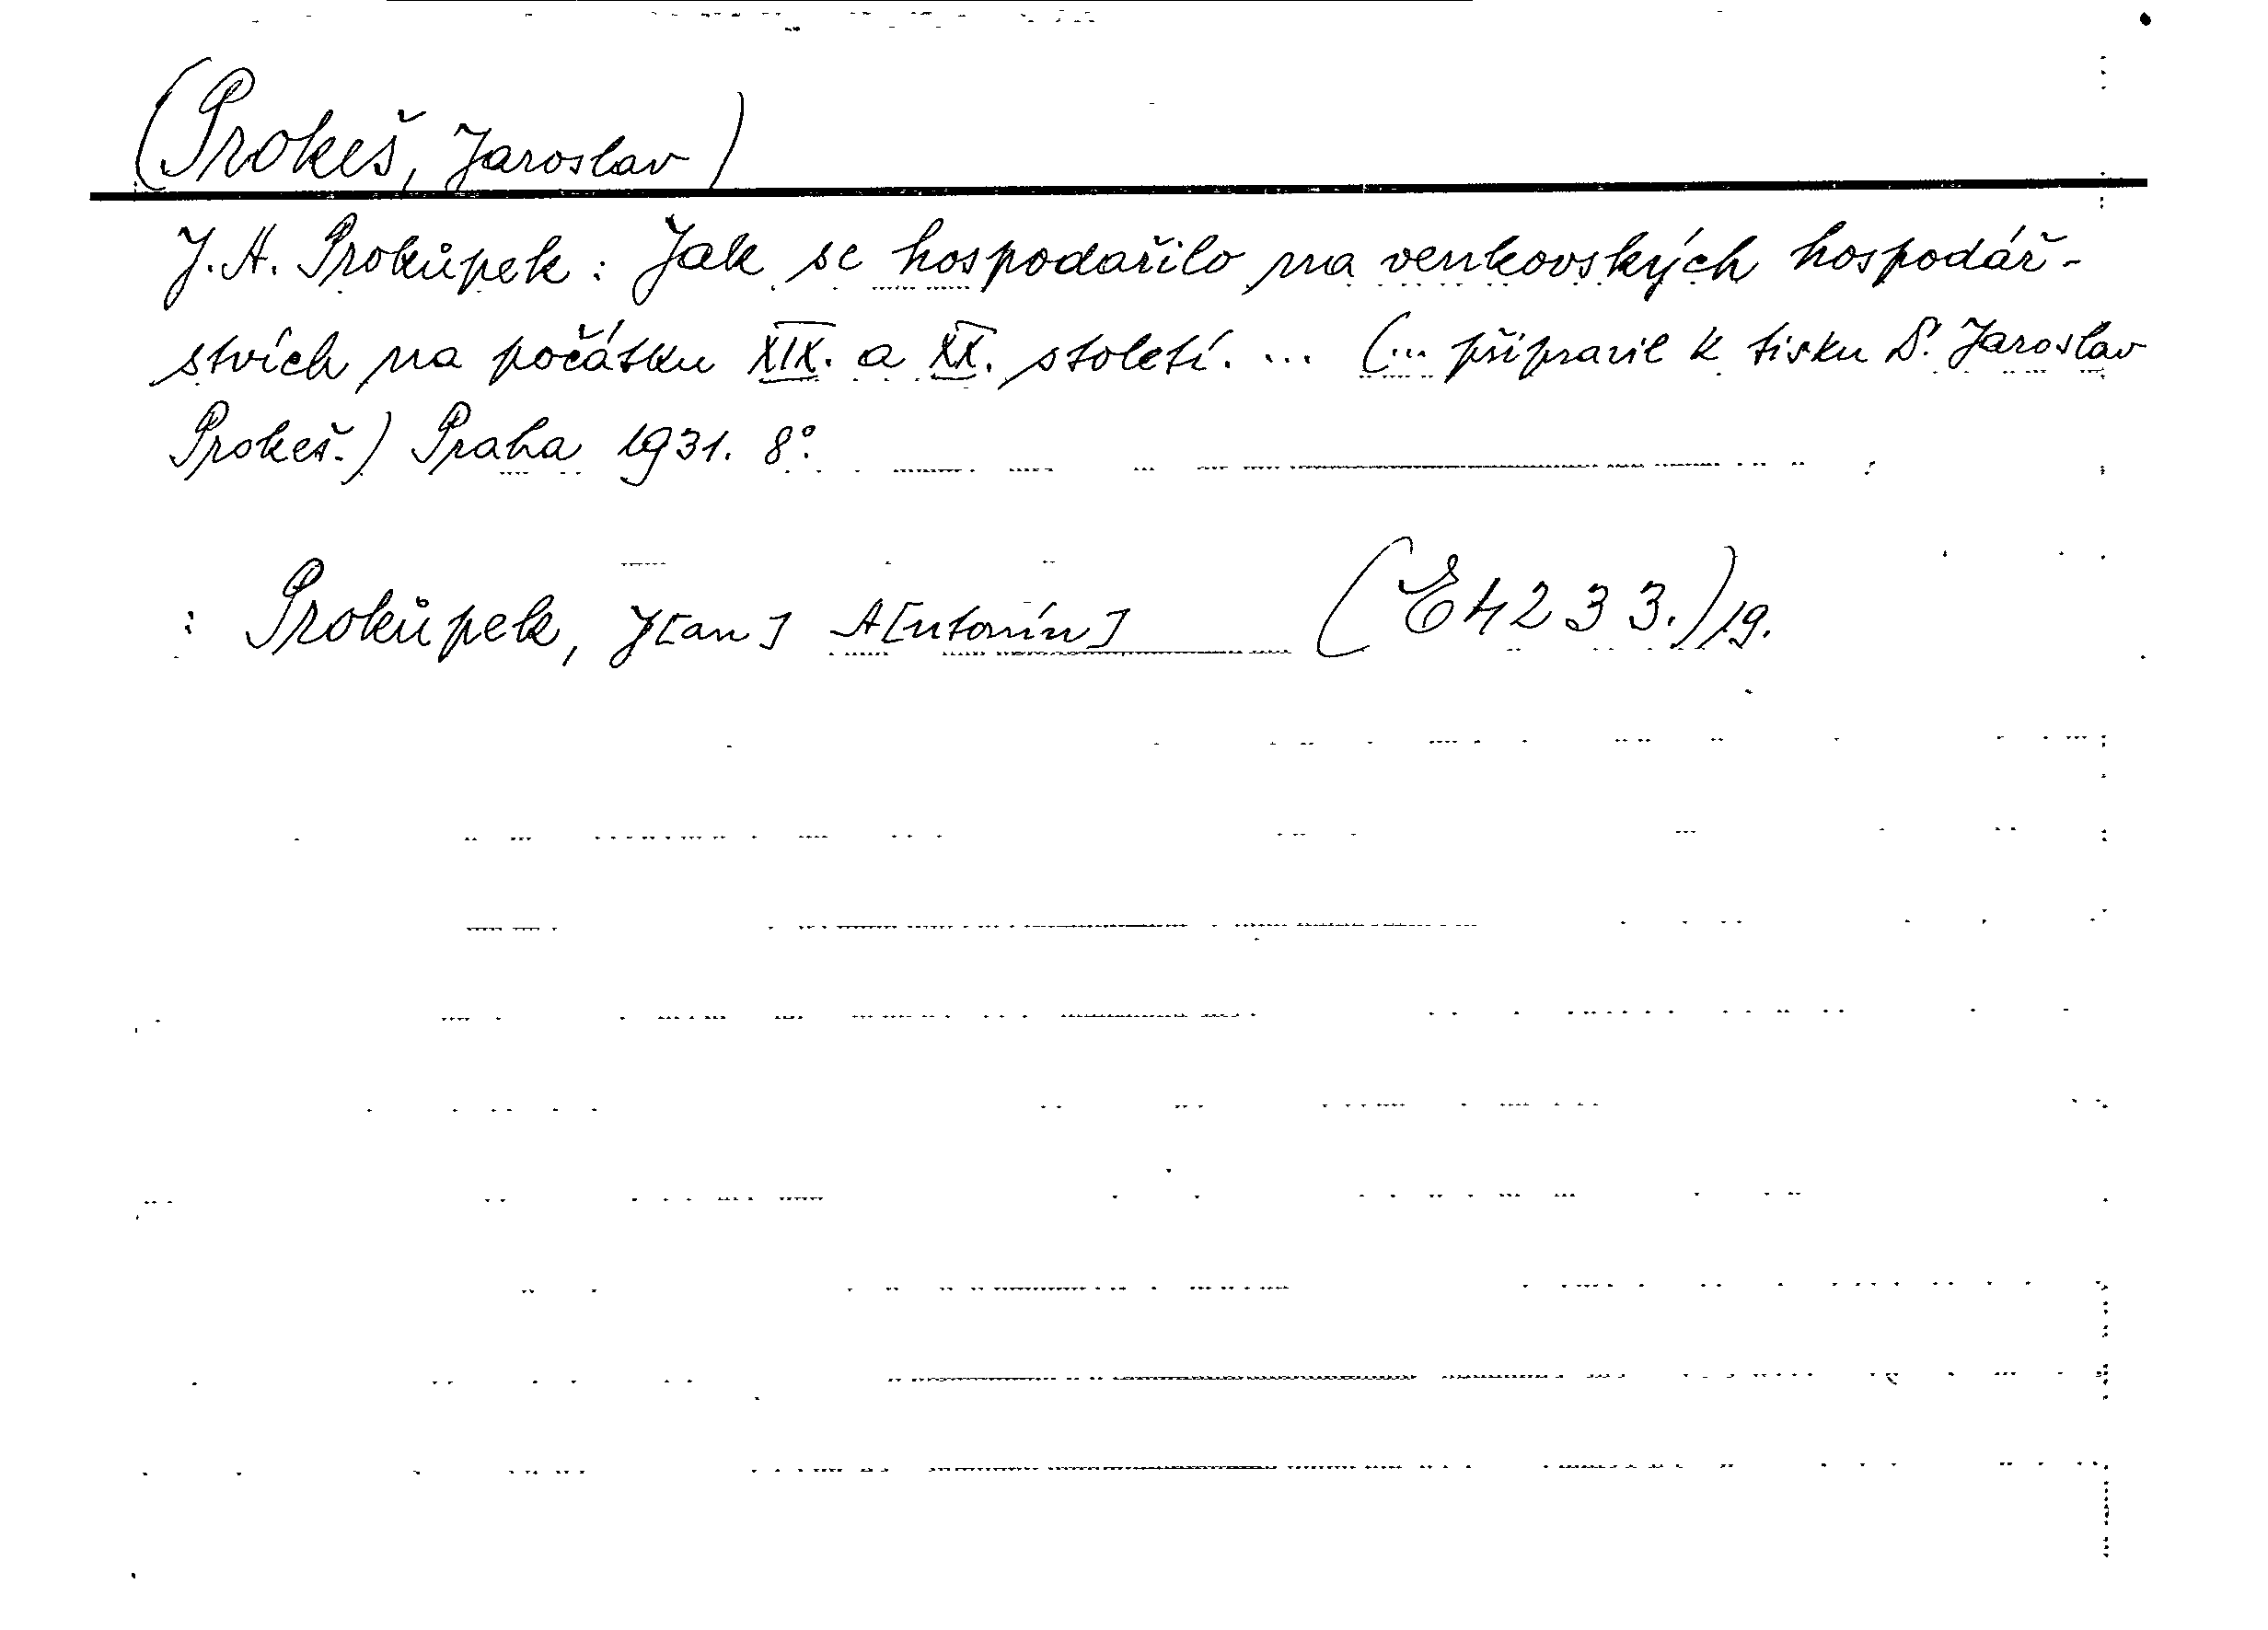 (Prokeš, Jaroslav)
J. A. Prokůpek: Jak se hospodařilo na venkovských hospodář-
stvích na počátku XIX. a XX. století. ... (... připravil k tisku Dr. Jaroslav
Prokeš.) Praha 1931. 8°.
: Prokůpek, J[an] A[ntonín] (E 4233.)/19.